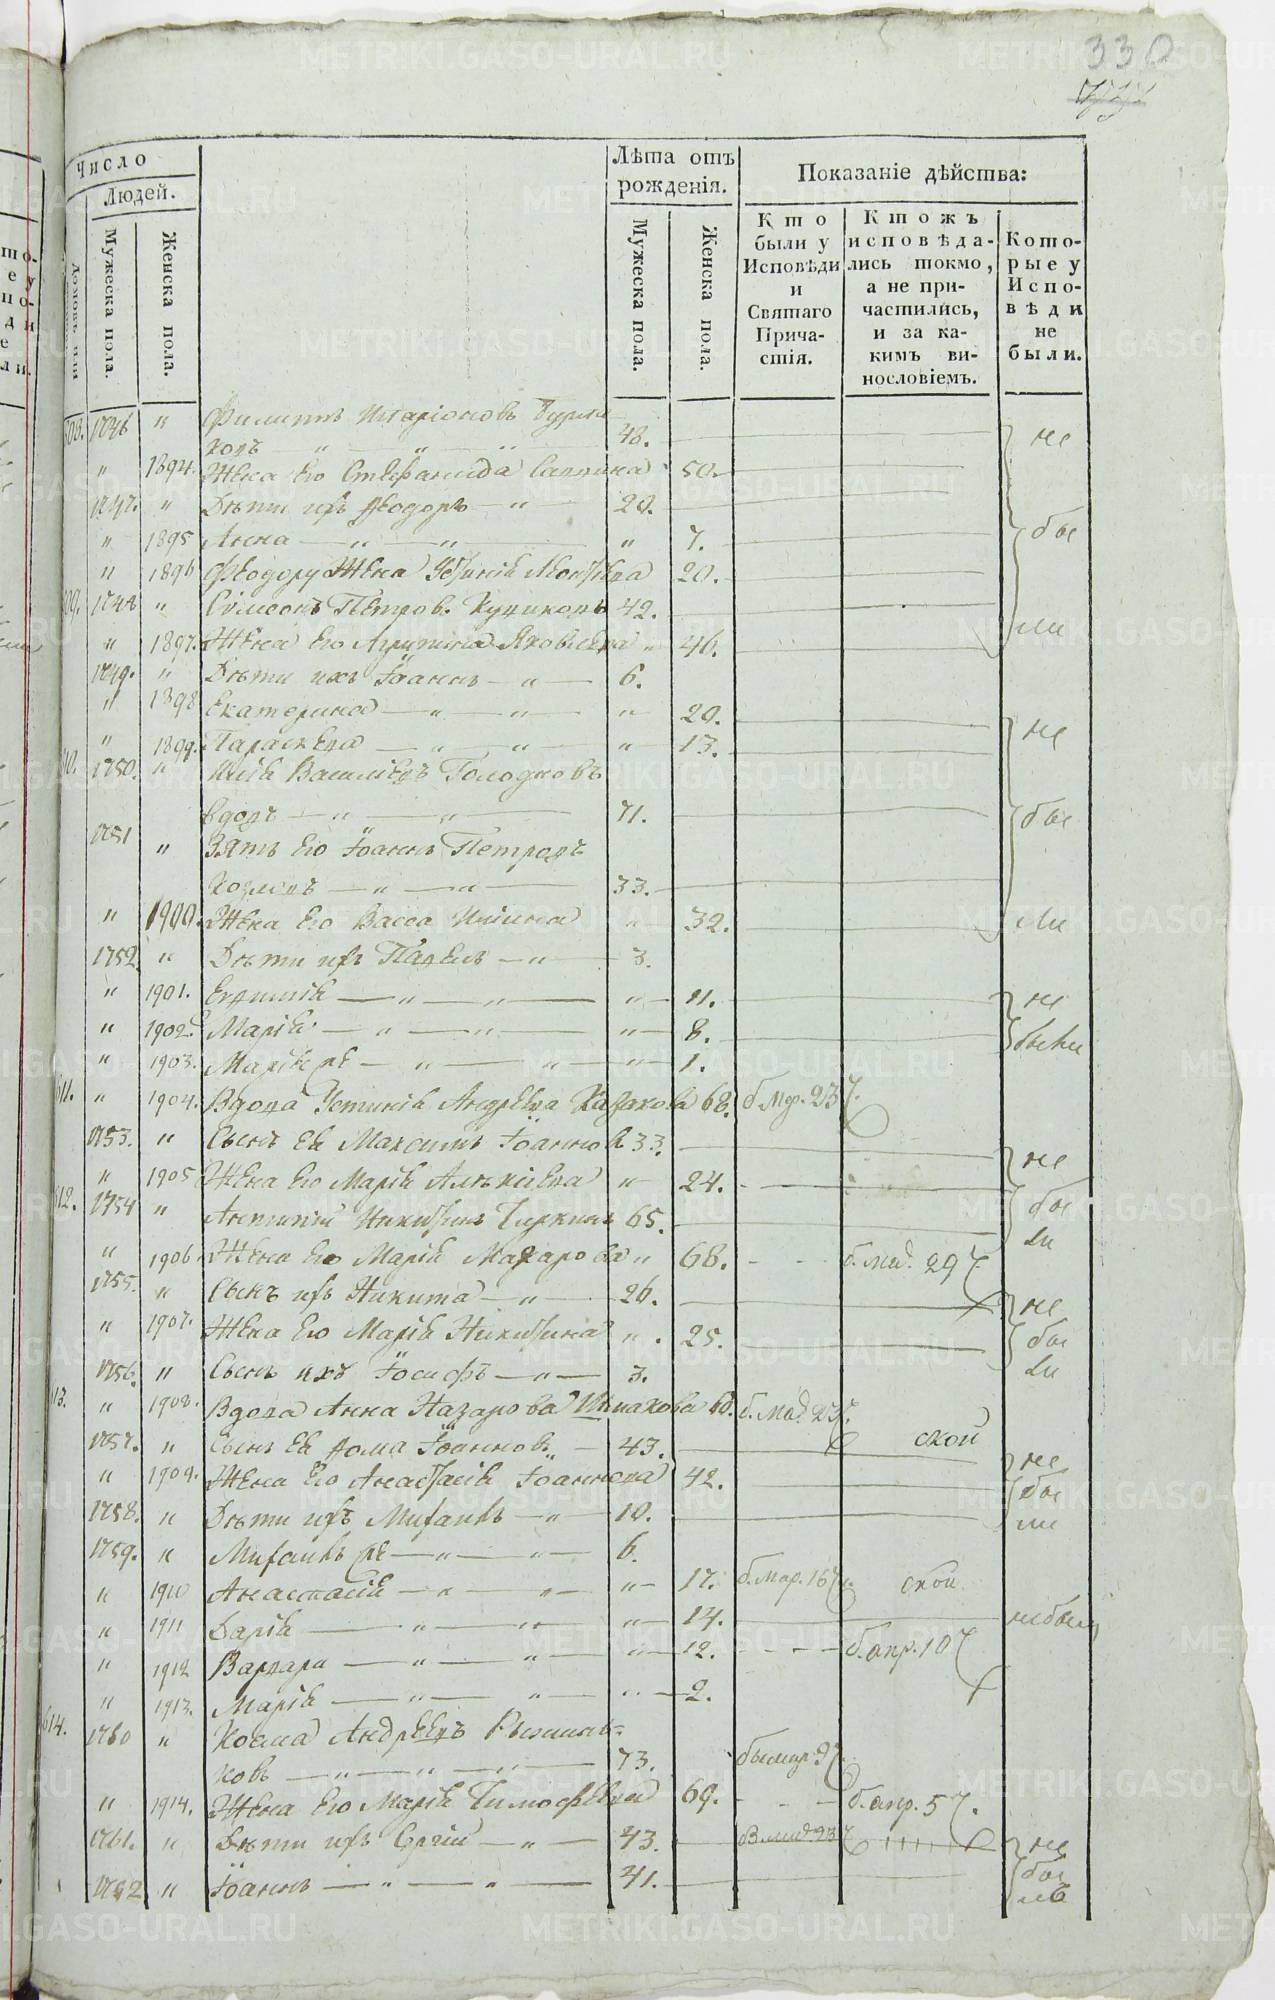 330
Число
Людей.
Мужеска пола.
Женска пола.
Лѣта отъ рожденія.
Мужеска пола.
Женска пола.
Показаніе дѣйства:
Кто были у Исповѣди и Святаго Причастія.
Ктожъ исповѣдались токмо, а не причастились, и за какимъ винословіемъ.
Которые у Исповѣди не были.
1746 " Филиппъ Иларіоновъ
" " " 48. не
" 1894. Жена Его Стефанида Саввина 50.
1747. " Дѣти ихъ Ѳеодоръ " 20.
" 1895 Анна " " " 7. бы
" 1896 Феодору Жена Устинія 20.
1748 " Сѵмеонъ Петров. 42.
" 1897. Жена Его Агрипина Яковлева " 46. ли
1749. " Дѣти ихъ Іоаннъ " 6.
" 1898 Екатерина " " " 20.
" 1899. Параскева " " " 13. не
1750. " Илія Васильевъ Голодновъ
вдовъ " " 71. бы
1751 " Зять Его Іоаннъ Петровъ
Козловъ " " 33.
" 1900. Жена Его Васса Ильина " 32. ли
1752. " Дѣти ихъ Павелъ " 3.
" 1901. Евдокія " " " 11. не
" 1902. Марія " " " 8. были
" 1903. Марія же " " " 1.
611. " 1904. Вдова Устинія Андреева Казакова 68. б. Мар. 23
1753. " Сынъ Ея Максимъ Іоаннов 33. не
" 1905 Жена Его Марія Алексіева " 24.
612. 1754 " Антипій Никитинъ Чиркинъ 65. бы
ли
" 1906. Жена Его Марія Макарова " 68. б. мар. 29
1755. " Сынъ ихъ Никита " 26. не
" 1907. Жена Его Марія Никитина " 25. бы
1756. " Сынъ ихъ Іосифъ " 3. ли
" 1908. Вдова Анна Назарова 60. б. мар. 23
1757. " Сынъ Ея Ѳома Іоаннов. 43. скои
" 1909. Жена Его Анастасія Іоаннова 42. не
1758. " Дѣти ихъ Михаилъ " 10. бы
ли
1759. " Михаилъ же " " 6.
" 1910 Анастасія " " " 17. б. мар. 16 скои
" 1911 Дарія " " " 14. небыли
" 1912 Варвара " " " 12. б. апр. 10
" 1913. Марія " " " 2.
614. 1760 " Косма Андреевъ
ковъ " " " 73. бы мар. 9
" 1914. Жена Его Марія Тимофеева 69. б. апр. 5
1761. " Дѣти ихъ Сергій " 43. не
1762 " Іоаннъ " " 41. бы
METRIKI.GASO-URAL.RU